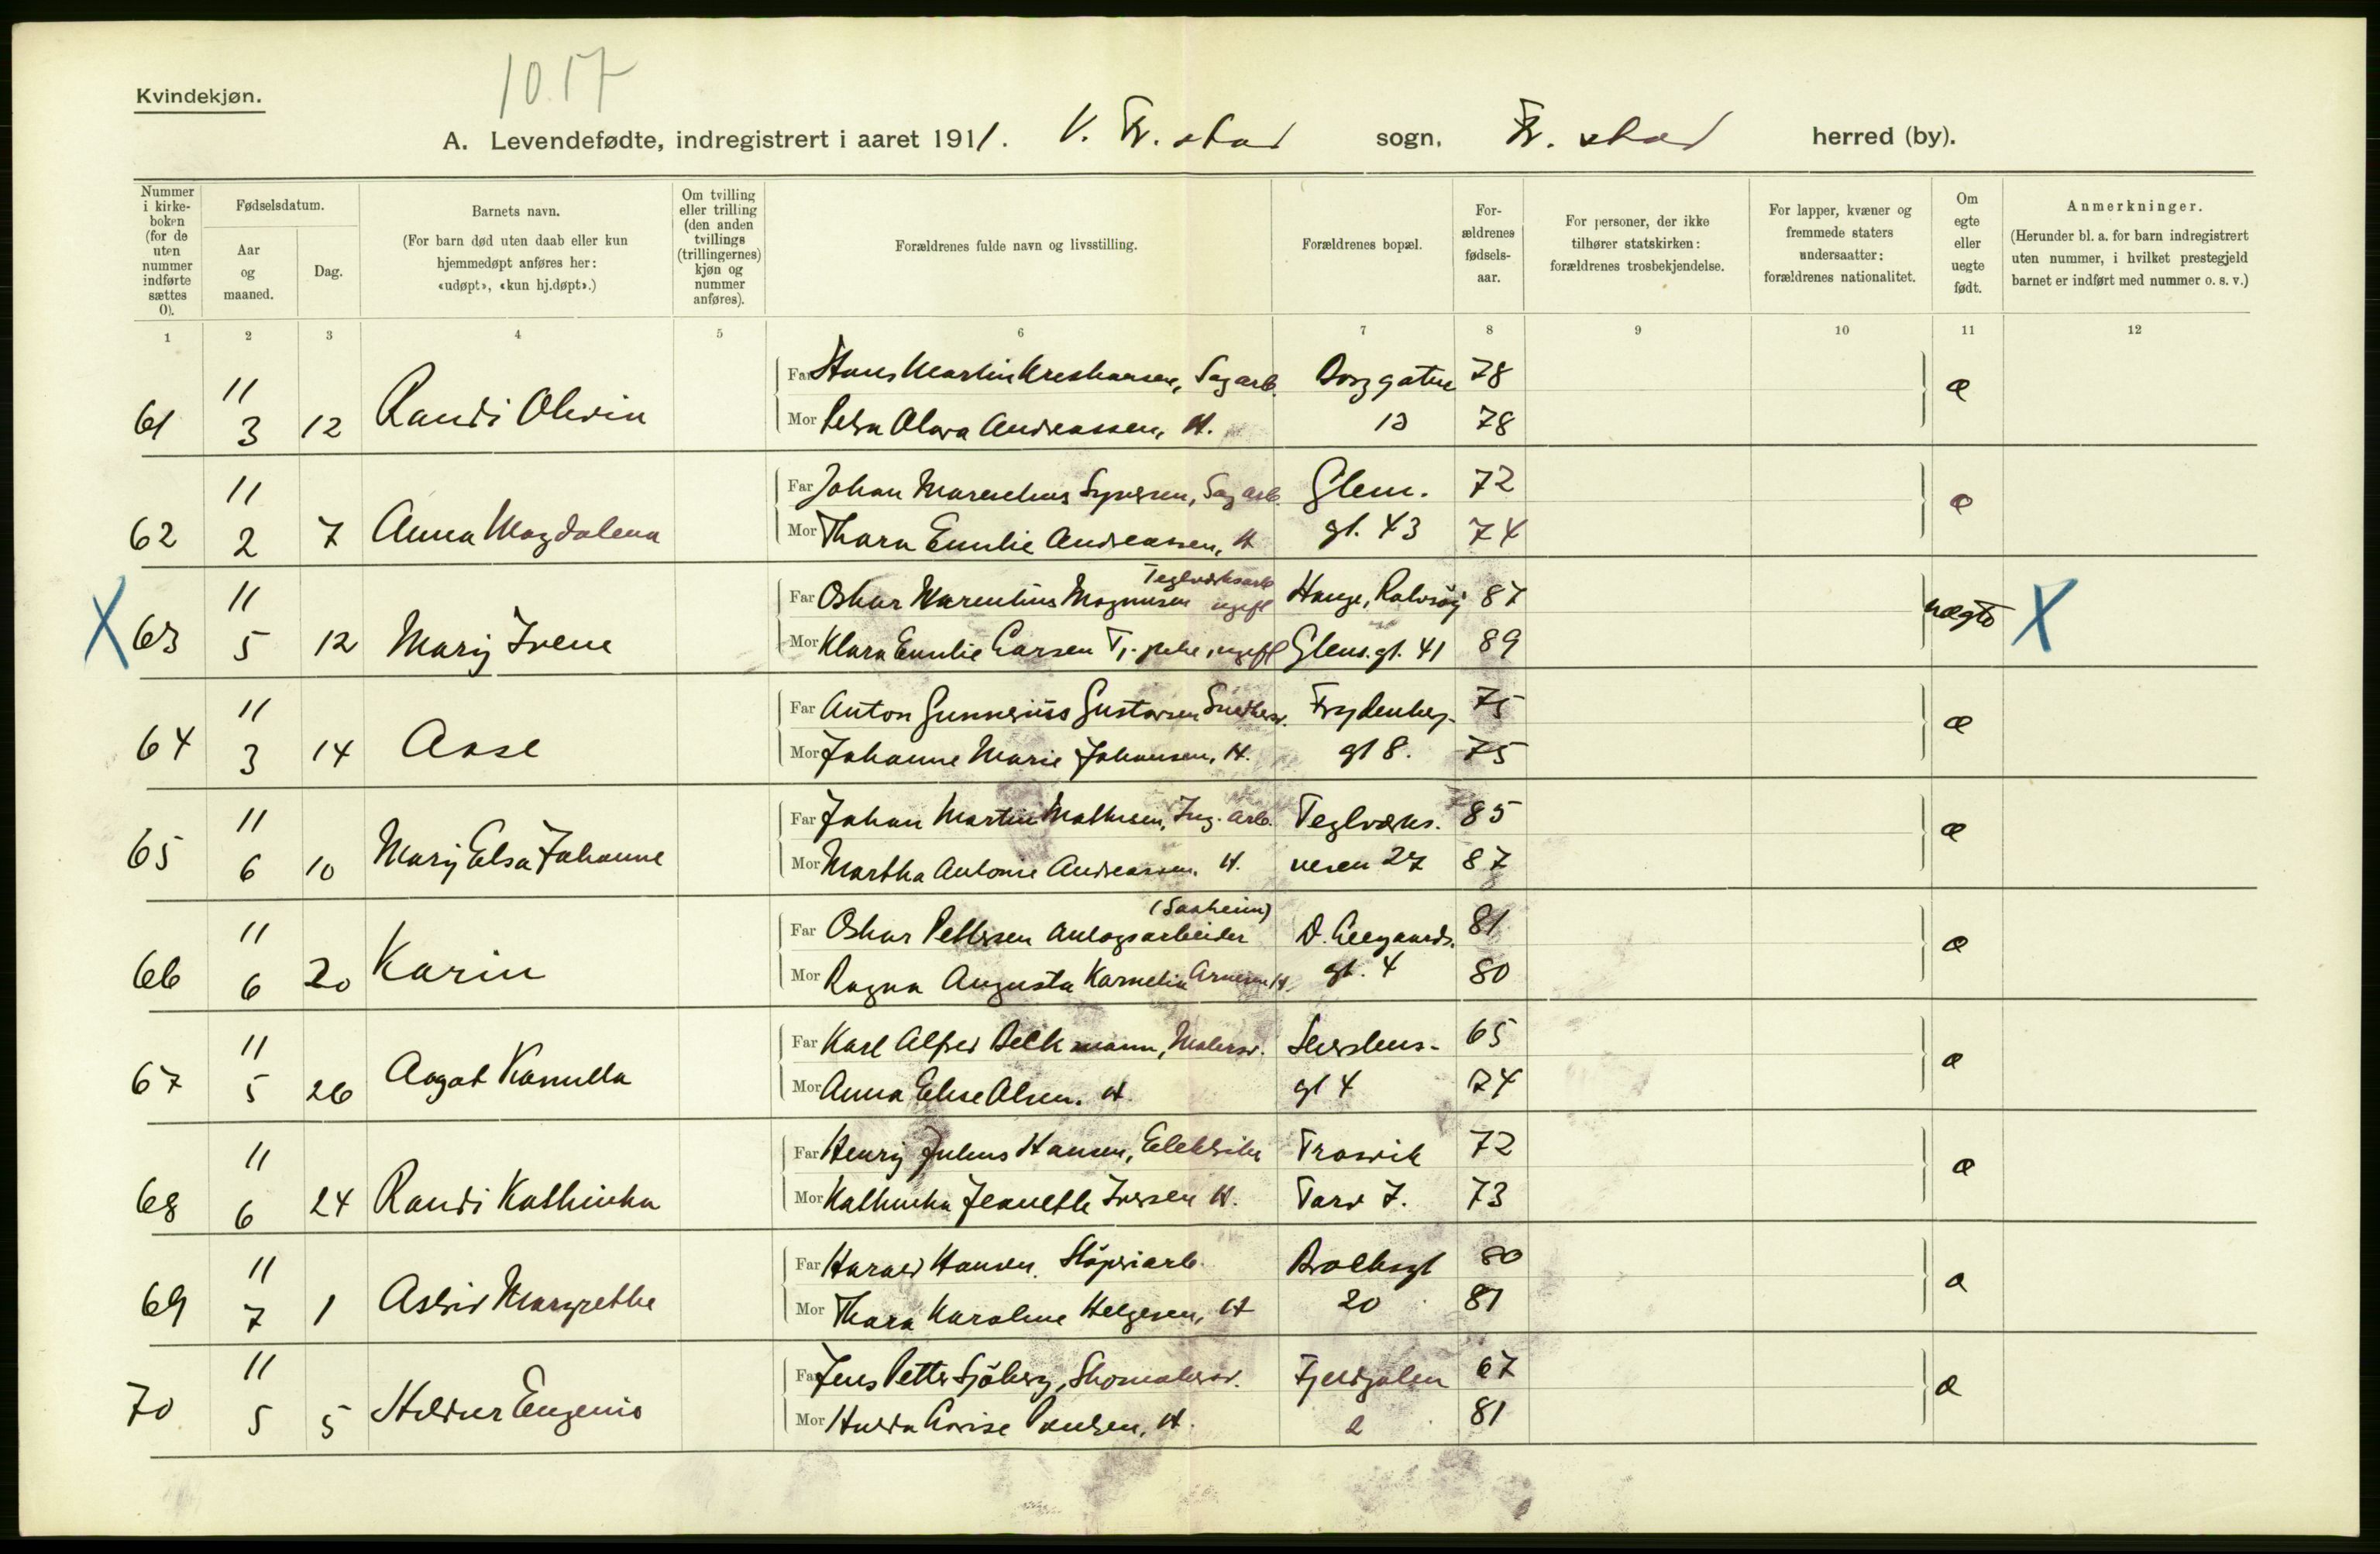 Kvindekjøn.
10.17
A. Levendefødte, indregistrert i aaret 1911. V. Fr. stad sogn, Fr. stad herred (by).
Nummer i kirke-boken (for de uten nummer indførte sættes 0).
Fødselsdatum.
Aar og maaned.
Dag.
Barnets navn.
(For barn død uten daab eller kun hjemmedøpt anføres her: «udøpt», «kun hj.døpt».)
Om tvilling eller trilling (den anden tvillings (trillingernes) kjøn og nummer anføres).
Forældrenes fulde navn og livsstilling.
Forældrenes bopæl.
For-ældrenes fødsels-aar.
For personer, der ikke tilhører statskirken: forældrenes trosbekjendelse.
For lapper, kvæner og fremmede staters undersaatter: forældrenes nationalitet.
Om egte eller uegte født.
Anmerkninger.
(Herunder bl. a. for barn indregistrert uten nummer, i hvilket prestegjeld barnet er indført med nummer o. s. v.)
1 2 3 4 5 6 7 8 9 10 11 12
11 Far Hans Martin Kristiansen, Sagarb. 78
61 3 12 Randi Mor Petra Andreassen, H. 13 78 æ
11 Far Johan Syversen, Sagarb. Glem. 72
62 2 7 Anna Magdalena Mor Thora Emilie Andreassen, H gt. 43 74 æ
Teglverksarb
11 Far Oskar Marentius Magnusen ugift Hauge, Rolvsøy 87
X 63 5 12 Mary Irene Mor Klara Emilie Larsen ugift Glem. gt. 41 89 uægte X
11 Far Anton Gunnerius Gustavsen Frydenberg- 75
64 3 14 Aase Mor Johanne Marie Johansen, H. gt 8. 75 æ
11 Far Johan Martin Mathisen, arb. Teglverks. 85
65 6 10 Mary Elsa Johanne Mor Martha Antonie Andreassen. H. veien 27 87 æ
(Saaheim)
11 Far Oskar Pettersen Anlægsarbeider 81
66 6 20 Karin Mor Ragna Augusta Kornelia Arnesen H. gt. 4 80 æ
11 Far Karl Alfred Malersv. 65
67 5 26 Aagot Kamilla Mor Anna Elise Olsen. H. gt 4 74 æ
11 Far Henry Julius Hansen, Trosvik 72
68 6 24 Randi Kathinka Mor Kathinka Jeanette Iversen H. Torv 7. 73 æ
11 Far Harald Hansen. Støperiarb. 80
69 7 1 Astrid Margrethe Mor Thora Karoline Helgesen, H 20 81 æ
11 Far Jens Petter Sjöberg, Skomakersv. 67
70 5 5 Hildur Eugenie Mor Hulda Lovise Paulsen, H. 2 81 æ